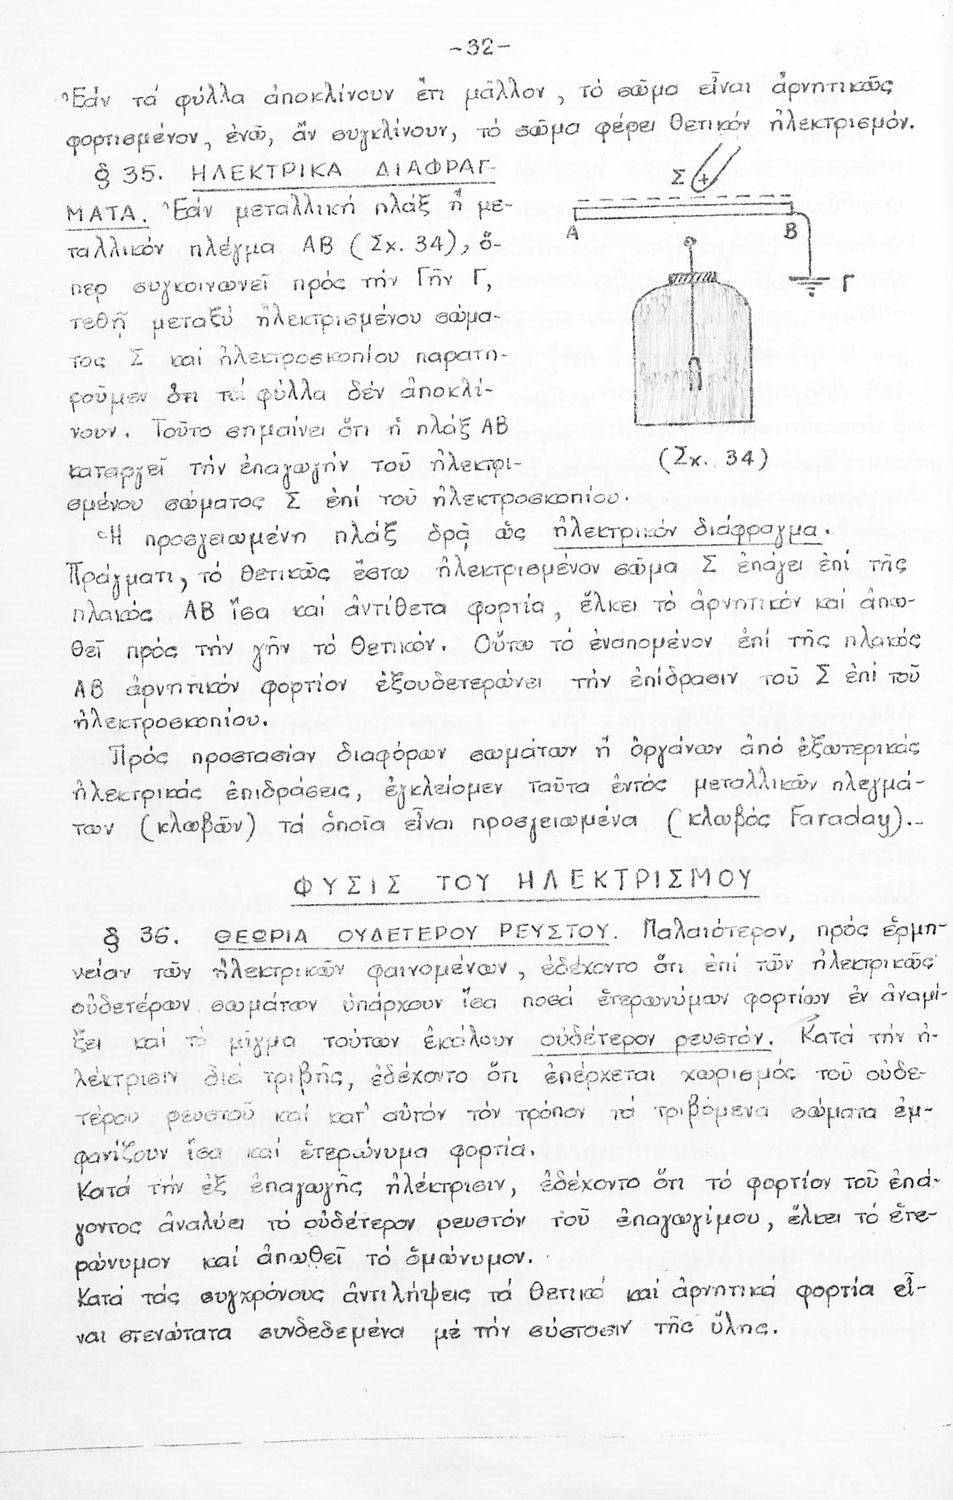 -32-
Ἐάν τά φύλλα ἀποκλίνουν ἔτι μᾶλλον, τό σῶμα εἶναι ἀρνητικῶς
φορτισμένον, ἐνῶ, ἄν συγκλίνουν, τό σῶμα φέρει θετικόν ἠλεκτρισμόν.
§ 35. ΗΛΕΚΤΡΙΚΑ ΔΙΑΦΡΑΓ-
ΜΑΤΑ. Ἐάν μεταλλική πλάξ ἤ με-
ταλλικόν πλέγμα ΑΒ (Σχ. 34), ὅ-
περ συγκοινωνεῖ πρός τήν Γῆν Γ,
τεθῇ μεταξύ ἠλεκτρισμένου σώμα-
τος Σ καί ἠλεκτροσκοπίου παρατη-
ροῦμεν ὅτι τά φύλλα δέν ἀποκλί-
νουν. Τοῦτο σημαίνει ὅτι ἡ πλάξ ΑΒ
καταργεῖ τήν ἐπαγωγήν τοῦ ἠλεκτρι-
σμένου σώματος Σ ἐπί τοῦ ἠλεκτροσκοπίου.
Σ
+
Α
Β
Γ
(Σχ. 34)
Ἡ προσγειωμένη πλάξ δρᾷ ὡς ἠλεκτρικόν διάφραγμα.
Πράγματι, τό θετικῶς ἔστω ἠλεκτρισμένον σῶμα Σ ἐπάγει ἐπί τῆς
πλακός ΑΒ ἴσα καί ἀντίθετα φορτία, ἕλκει τό ἀρνητικόν καί ἀπω-
θεῖ πρός τήν γῆν τό θετικόν. Οὕτω τό ἐναπομένον ἐπί τῆς πλακός
ΑΒ ἀρνητικόν φορτίον ἐξουδετερώνει τήν ἐπίδρασιν τοῦ Σ ἐπί τοῦ
ἠλεκτροσκοπίου.
Πρός προστασίαν διαφόρων σωμάτων ἤ ὀργάνων ἀπό ἐξωτερικάς
ἠλεκτρικάς ἐπιδράσεις, ἐγκλείομεν ταῦτα ἐντός μεταλλικῶν πλεγμά-
των (κλωβῶν) τά ὁποῖα εἶναι προσγειωμένα (κλωβός Faraday)..
ΦΥΣΙΣ ΤΟΥ ΗΛΕΚΤΡΙΣΜΟΥ
§ 36. ΘΕΩΡΙΑ ΟΥΔΕΤΕΡΟΥ ΡΕΥΣΤΟΥ. Παλαιότερον, πρός ἑρμη-
νείαν τῶν ἠλεκτρικῶν φαινομένων, ἐδέχοντο ὅτι ἐπί τῶν ἠλεκρικῶς
οὐδετέρων σωμάτων ὑπάρχουν ἴσα ποσά ἑτερωνύμων φορτίων ἐν ἀναμί-
ξει καί τό μίγμα τούτων ἐκάλουν οὐδέτερον ρευστόν. Κατά τήν ἠ-
λέκτρισιν διά τριβῆς, ἐδέχοντο ὅτι ἐπέρχεται χωρισμός τοῦ οὐδε-
τέρου ρευστοῦ καί κατ' αὐτόν τόν τρόπον τά τριβόμενα σώματα ἐμ-
φανίζουν ἴσα καί ἑτερώνυμα φορτία.
Κατά τήν ἐξ ἐπαγωγῆς ἠλέκτρισιν, ἐδέχοντο ὅτι τό φορτίον τοῦ ἐπά-
γοντος ἀναλύει τό οὐδέτερον ρευστόν τοῦ ἐπαγωγίμου, ἕλκει τό ἑτε-
ρώνυμον καί ἀπωθεῖ τό ὁμώνυμον.
Κατά τάς συγχρόνους ἀντιλήψεις τά θετικά καί ἀρνητικά φορτία εἶ-
ναι στενώτατα συνδεδεμένα μέ τήν σύστασιν τῆς ὕλης.